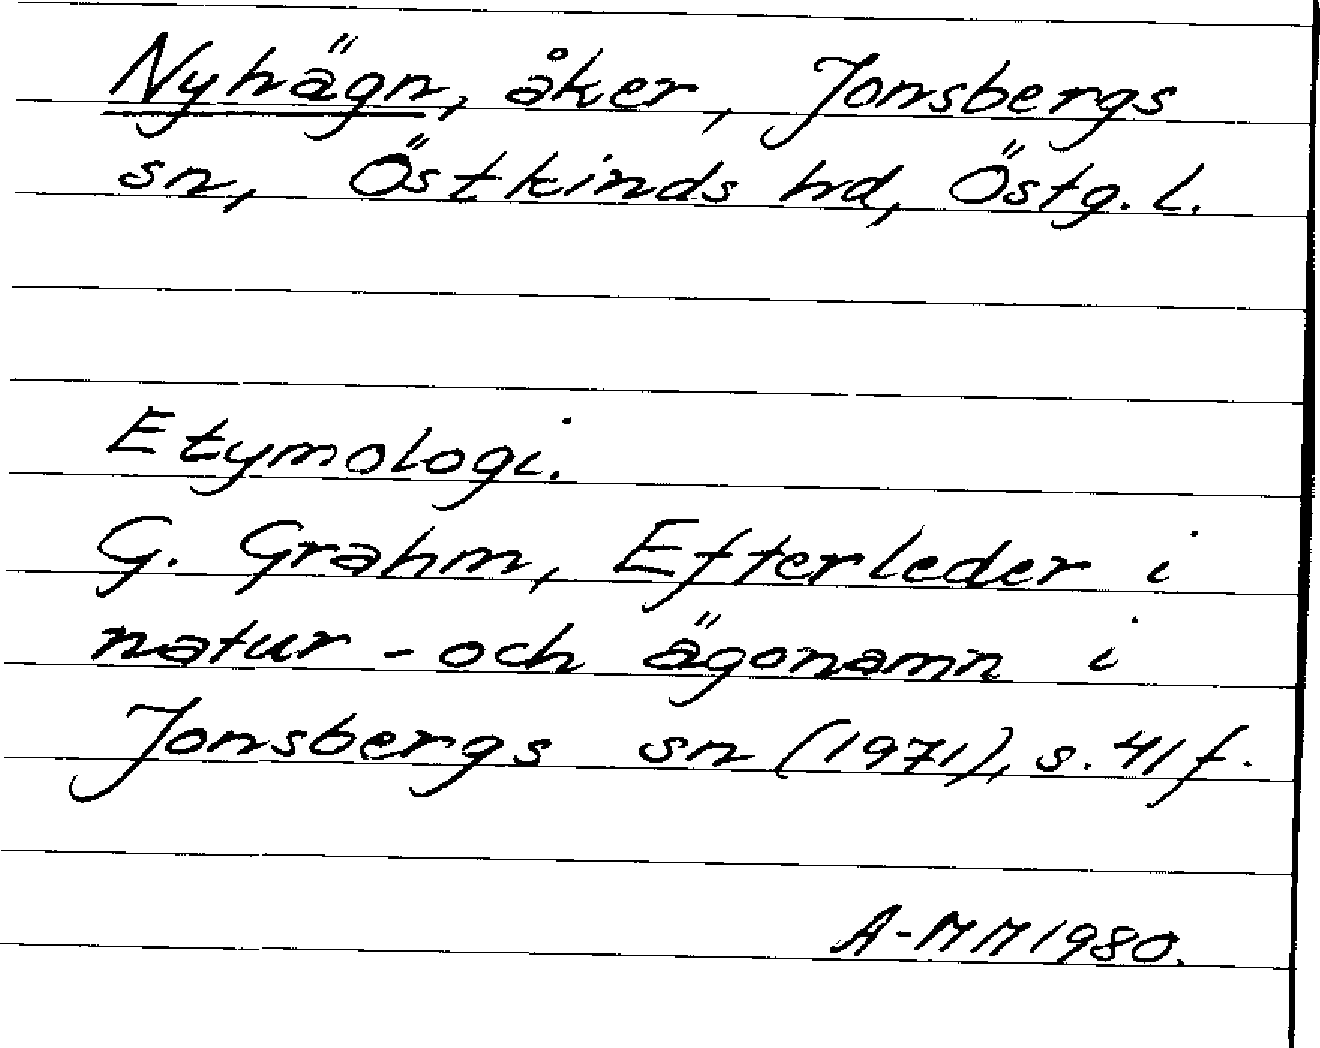 Nyhägn, åker, Jonsbergs
sn, Östkinds hd, Östg. l.
Etymologi.
G. Grahm, Efterleder i
natur- och ägonamn i
Jonsbergs sn (1971), s. 41 f.
A-MM 1980.